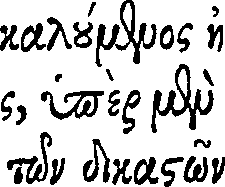 καλούμενος ἢ
ς, ὑπὲρ μὲν
τῶν δικαστῶν